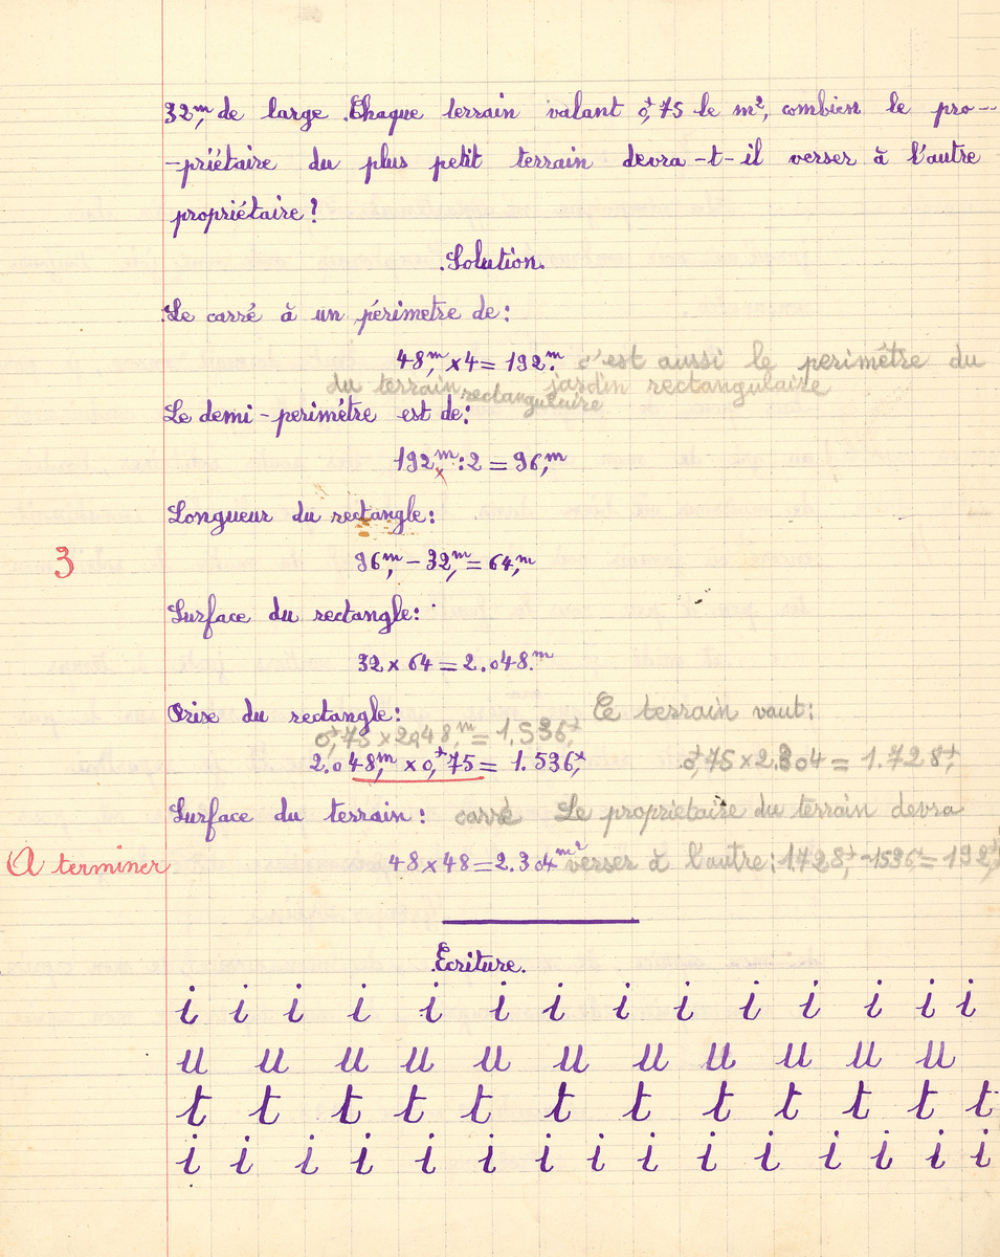 32,m de large. Chaque terrain valant 0,f75 le m², combien le pro-
-priétaire du plus petit terrain devra-t-il verser à l'autre
propriétaire ?
Solution.
Le carré à un périmetre de :
48,m × 4 = 192.m c'est aussi le perimêtre du
du terrain rectangulaire jardin rectangulaire
Le demi-perimétre est de :
192,m : 2 = 96,m
Longueur du rectangle :
3
96,m - 32,m = 64,m
Surface du rectangle :
32 × 64 = 2.048.m
Prix du rectangle : Le terrain vaut :
0,f75 × 2048,m = 1.536,f
2.048,m × 0,f75 = 1.536,f 0,f75 × 2.304 = 1.728,f
Surface du terrain : carré Le proprietaire du terrain devra
A terminer 48 × 48 = 2.304m² verser à l'autre : 1728,f - 1536,f = 192,f
Ecriture.
i i i i i i i i i i i i i i
u u u u u u u u u u u
t t t t t t t t t t t t
i i i i i i i i i i i i i i i